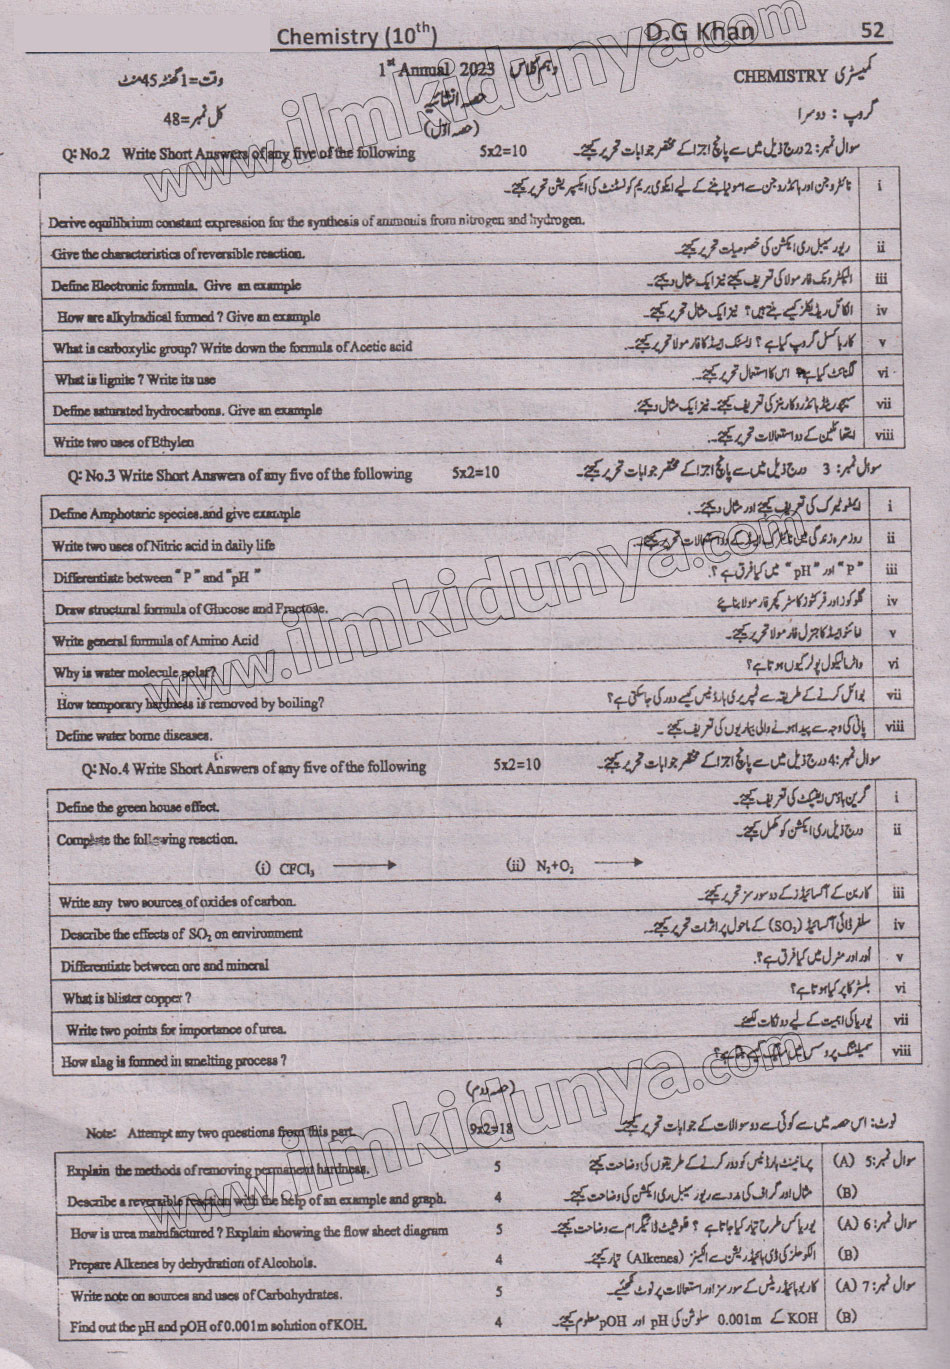 Chemistry (10th) D.G Khan 52
وقت=1 گھنٹہ 45 منٹ 1st Annual 2023 دہم کلاس CHEMISTRY کیمسٹری
کل نمبر=48 حصہ انشائیہ گروپ : دوسرا
(حصہ اول)
Q: No.2 Write Short Answers of any five of the following 5x2=10 سوال نمبر: 2 درج ذیل میں سے پانچ اجزا کے مختصر جوابات تحریر کیجئے۔
نائٹروجن اور ہائڈروجن سے امونیا بننے کے لیے ایکوی بریم کونسٹنٹ کی ایکسپریشن تحریر کیجئے۔ i
Derive equilibrium constant expression for the synthesis of ammonia from nitrogen and hydrogen.
Give the characteristics of reversible reaction. ریورسیبل ری ایکشن کی خصوصیات تحریر کیجئے۔ ii
Define Electronic formula. Give an example الیکٹرونک فارمولا کی تعریف کیجئے نیز ایک مثال دیجئے۔ iii
How are alkylradical formed ? Give an example الکائل ریڈیکلز کیسے بنتے ہیں؟ نیز ایک مثال تحریر کیجئے۔ iv
What is carboxylic group? Write down the formula of Acetic acid کاربا کسل گروپ کیا ہے؟ ایسٹک ایسڈ کا فارمولا تحریر کیجئے۔ v
What is lignite ? Write its use لگنائٹ کیا ہے اس کا استعمال تحریر کیجئے۔ vi
Define saturated hydrocarbons. Give an example سیچوریٹڈ ہائڈروکاربنز کی تعریف کیجئے۔ نیز ایک مثال دیجئے۔ vii
Write two uses of Ethylen ایتھائلین کے دو استعمالات تحریر کیجئے۔ viii
Q: No.3 Write Short Answers of any five of the following 5x2=10 سوال نمبر: 3 درج ذیل میں سے پانچ اجزا کے مختصر جوابات تحریر کیجئے۔
Define Amphotaric species.and give example کی تعریف کیجئے اور مثال دیجئے۔ i
Write two uses of Nitric acid in daily life روزمرہ زندگی میں نائٹرک ایسڈ کے دو استعمالات تحریر کیجئے۔ ii
Differentiate between "P" and "pH" "P" اور "pH" میں کیا فرق ہے؟ iii
Draw structural formula of Glucose and Fructose. گلوکوز اور فرکٹوز کا سٹرکچر فارمولا بنائیے iv
Write general formula of Amino Acid امائنو ایسڈ کا جنرل فارمولا تحریر کیجئے۔ v
Why is water molecule polar? واٹر مالیکیول پولر کیوں ہوتا ہے؟ vi
How temporary hardness is removed by boiling? بوائل کرنے کے طریقہ سے ٹمپریری ہارڈنیس کیسے دور کی جاسکتی ہے؟ vii
Define water borne diseases. پانی کی وجہ سے پیدا ہونے والی بیماریوں کی تعریف کیجئے۔ viii
Q: No.4 Write Short Answers of any five of the following 5x2=10 سوال نمبر: 4 درج ذیل میں سے پانچ اجزا کے مختصر جوابات تحریر کیجئے۔
Define the green house effect. گرین ہاؤس ایفیکٹ کی تعریف کیجئے۔ i
Complete the following reaction. درج ذیل ری ایکشن کو مکمل کیجئے۔ ii
(i) CFCl₃ → (ii) N₂+O₂ →
Write any two sources of oxides of carbon. کاربن کے آکسائیڈز کے دو سورسز تحریر کیجئے۔ iii
Describe the effects of SO₂ on environment سلفر ڈائی آکسائیڈ (SO₂) کے ماحول پر اثرات تحریر کیجئے۔ iv
Differentiate between ore and mineral اور اور منرل میں کیا فرق ہے؟ v
What is blister copper ? بلسٹر کاپر کیا ہوتا ہے؟ vi
Write two points for importance of urea. یوریا کی اہمیت کے لیے دو نکات لکھئے۔ vii
How slag is formed in smelting process ? سمیلٹنگ پروسس میں سلیگ کیسے بنتا ہے؟ viii
(حصہ دوم)
Note: Attempt any two questions from this part. 9x2=18 نوٹ: اس حصہ میں سے کوئی سے دو سوالات کے جوابات تحریر کیجئے۔
Explain the methods of removing permanent hardness. 5 پرمانینٹ ہارڈنیس کو دور کرنے کے طریقوں کی وضاحت کیجئے (A) سوال نمبر: 5
Describe a reversible reaction with the help of an example and graph. 4 مثال اور گراف کی مدد سے ریورسیبل ری ایکشن کی وضاحت کیجئے۔ (B)
How is urea manufactured ? Explain showing the flow sheet diagram 5 یوریا کس طرح تیار کیا جاتا ہے ؟ فلو شیٹ ڈائیگرام سے وضاحت کیجئے۔ (A) سوال نمبر: 6
Prepare Alkenes by dehydration of Alcohols. 4 الکوحلز کی ڈی ہائیڈریشن سے الکینز (Alkenes) تیار کیجئے۔ (B)
Write note on sources and uses of Carbohydrates. 5 کاربوہائیڈریٹس کے سورسز اور استعمالات پر نوٹ لکھئے۔ (A) سوال نمبر: 7
Find out the pH and pOH of 0.001m solution of KOH. 4 KOH کے 0.001m سلوشن کی pH اور pOH معلوم کیجئے۔ (B)
www.ilmkidunya.com
www.ilmkidunya.com
www.ilmkidunya.com